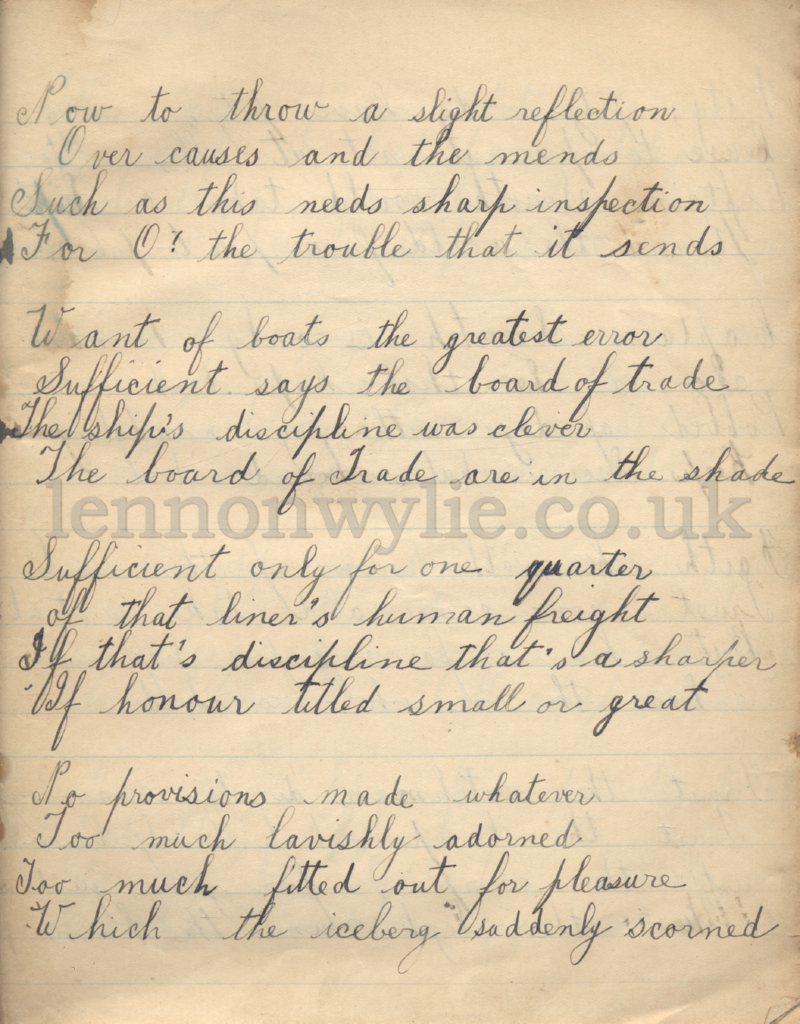 Now to throw a slight reflection
Over causes and the mends
Such as this needs sharp inspection
For O! the trouble that it sends
Want of boats the greatest error
Sufficient says the board of trade
The ship's discipline was clever
The board of Trade are in the shade
lennonwylie.co.uk
Sufficient only for one quarter
of that liner's human freight
If that's discipline that's a sharper
If honour titled small or great
No provisions made whatever
Too much lavishly adorned
Too much fitted out for pleasure
Which the iceberg suddenly scorned